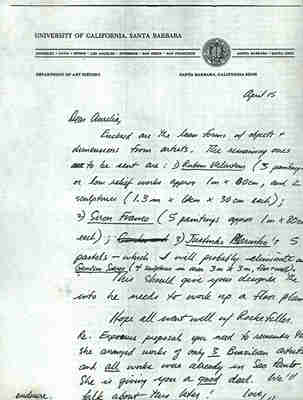 UNIVERSITY OF CALIFORNIA, SANTA BARBARA
BERKELEY • DAVIS • IRVINE • LOS ANGELES • RIVERSIDE • SAN DIEGO • SAN FRANCISCO
SANTA BARBARA • SANTA CRUZ
DEPARTMENT OF ART HISTORY
SANTA BARBARA, CALIFORNIA 93106
April 15
Dear Aurelia,
Enclosed are the loan forms of objects +
dimensions from artists. The remaining ones
to be sent are: 1) Rubem Valentim (5 paintings
or low relief works approx 1m x 80cm, and
sculptures (1.3 m x 30 cm each);
2) Siron Franco (5 paintings approx 1m x
each); 3)
pastels – which I will probably eliminate
(4 sculptures in area 3m x 3m, floor
This should give your designer the
info he needs to work up a floor plan
Hope all went well w/ Rockefeller.
Re. proposal you need to remember
she arranged works of only 3 Brazilian artists
and all works were already in Sao Paulo
She is giving you a good deal. We'll
talk about this later! Love,